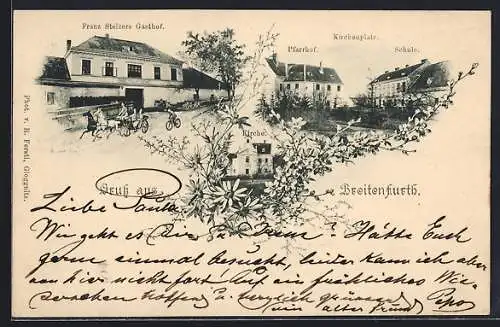 Franz Stelzers Gasthof.
Kirchenplatz.
Pfarrhof.
Schule.
Kirche.
Phot. v. B. Forstl, Gloggnitz.
Gruß aus
Breitenfurth.
Liebe
Wie geht es Dir u. ? Hätte Euch
gerne einmal besucht, leider kann ich aber
von hier nicht fort! Auf ein fröhliches Wie-
hoffend u. herzlich grüssend
Dein alter Freund